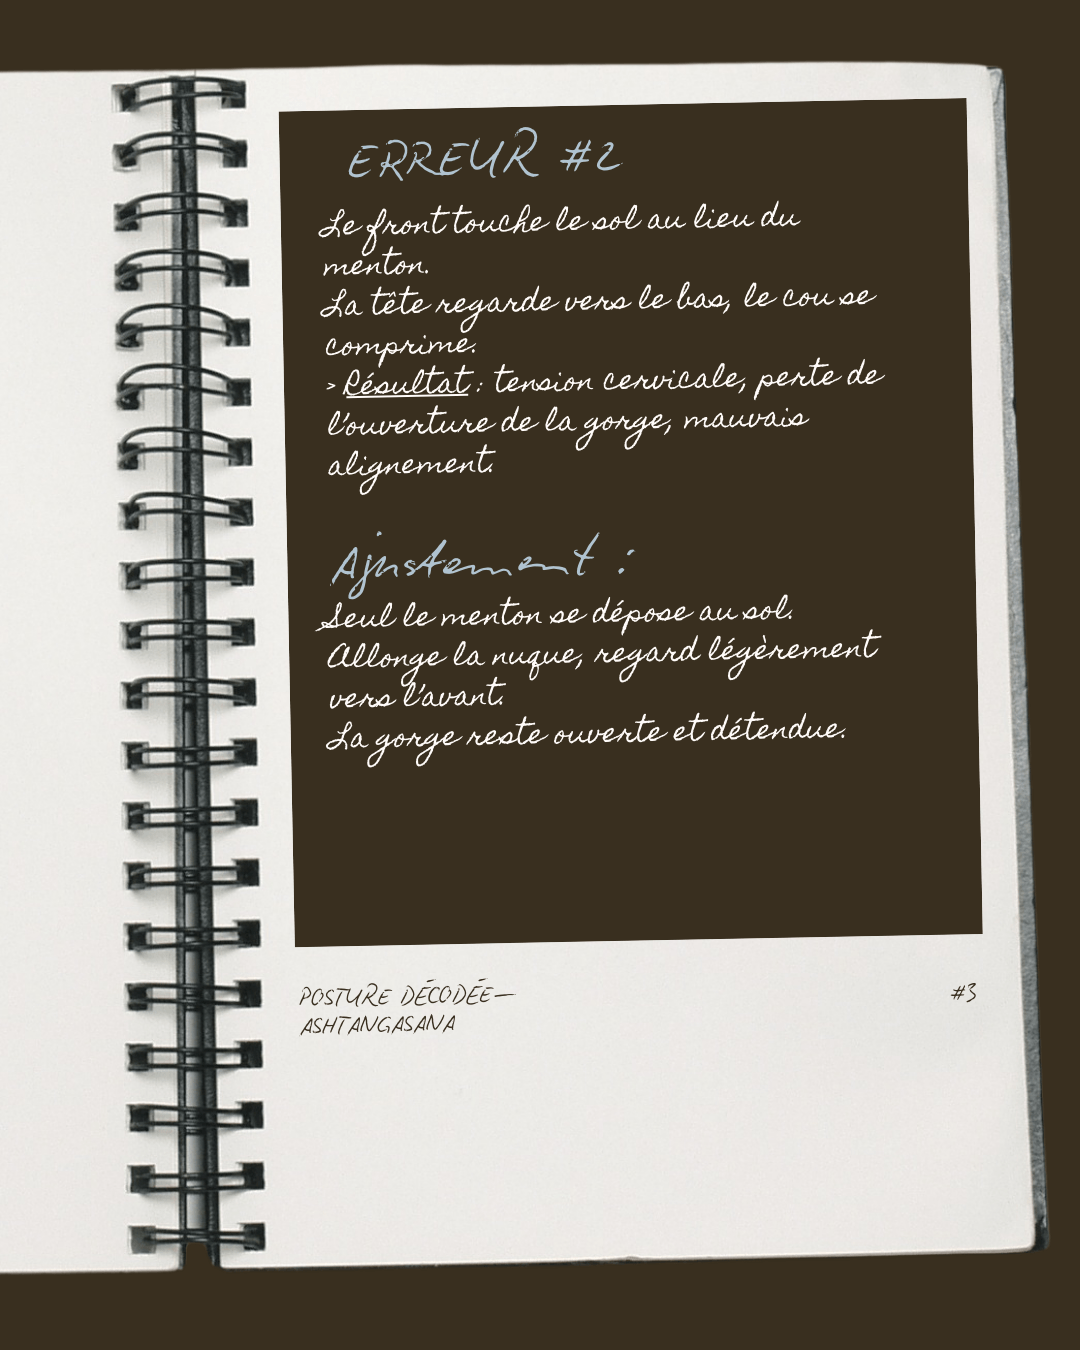 ERREUR #2
Le front touche le sol au lieu du
menton.
La tête regarde vers le bas, le cou se
comprime.
> Résultat : tension cervicale, perte de
l'ouverture de la gorge, mauvais
alignement.
Ajustement :
Seul le menton se dépose au sol.
Allonge la nuque, regard légèrement
vers l'avant.
La gorge reste ouverte et détendue.
POSTURE DÉCODÉE—
ASHTANGASANA
#3